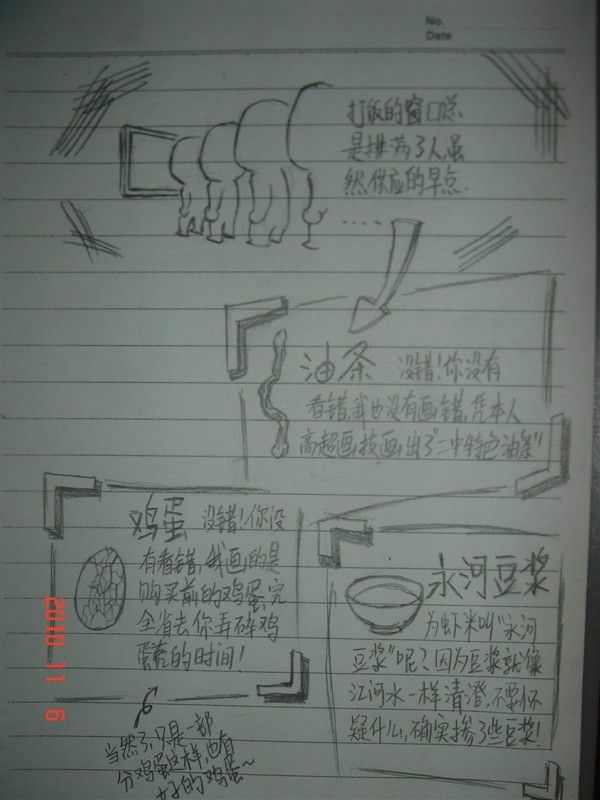 No.
Date
打饭的窗口总
是挤满了人虽
然供应的早点
......
油条 没错!你没有
看错,我也没有画错,凭本人
高超画技画出了"二中特色油条"
鸡蛋 没错!你没
有看错,我画的是
购买前的鸡蛋完
全省去你弄碎鸡
蛋壳的时间!
当然了,只是一部
分鸡蛋这样,也有
好的鸡蛋~
永河豆浆
为虾米叫"永河
豆浆"呢?因为豆浆就像
江河水一样清澄,不要怀
疑什么,确实掺了些豆浆!
2010 11 6